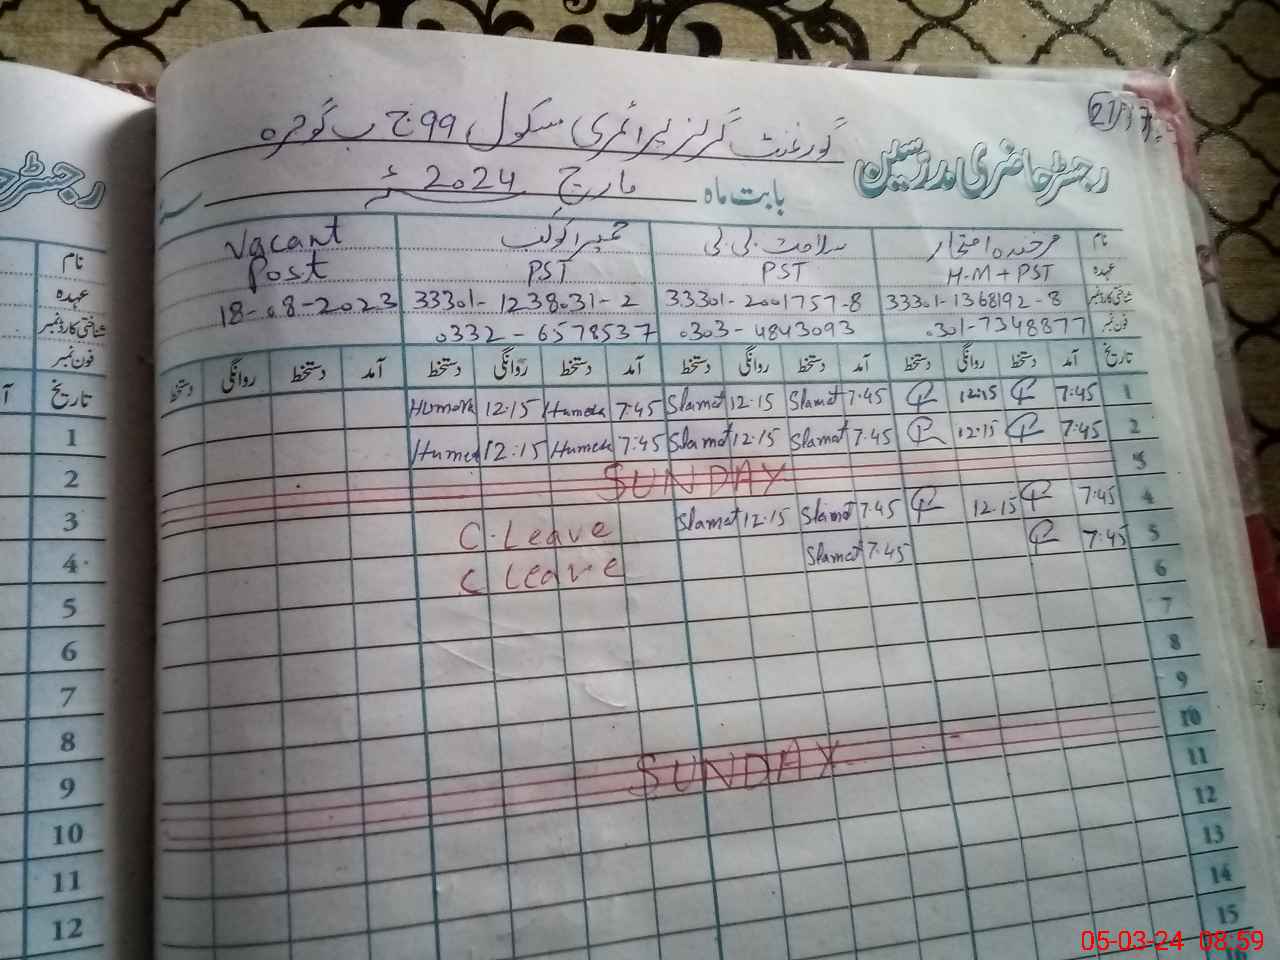 27/17
گورنمنٹ گرلز پرائمری سکول 99 ج ب گوجرہ
رجسٹر حاضری مدرسین
بابت ماہ مارچ 2024ء
نام فرخندہ افتخار سلامت بی بی حمیرا کوکب Vacant
عہدہ H.M+PST PST PST Post
شناختی کارڈ نمبر 33301-1368192-8 33301-2001757-8 33301-1238031-2 18-08-2023
فون نمبر 0301-7348877 0303-4843093 0332-6578537
تاریخ آمد دستخط روانگی دستخط آمد دستخط روانگی دستخط آمد دستخط روانگی دستخط آمد دستخط روانگی دستخط
1 7:45 12:15 7:45 Slamat 12:15 Slamat 7:45 Humera 12:15 Humera
2 7:45 12:15 7:45 Slamat 12:15 Slamat 7:45 Humera 12:15 Humera
3 SUNDAY
4 7:45 12:15 7:45 Slamat 12:15 Slamat C. Leave
5 7:45 7:45 Slamat C Leave
6
7
8
9
10 SUNDAY
11
12
13
14
15
16
نام
عہدہ
شناختی کارڈ نمبر
فون نمبر
تاریخ
1
2
3
4
5
6
7
8
9
10
11
12
05-03-24 08:59